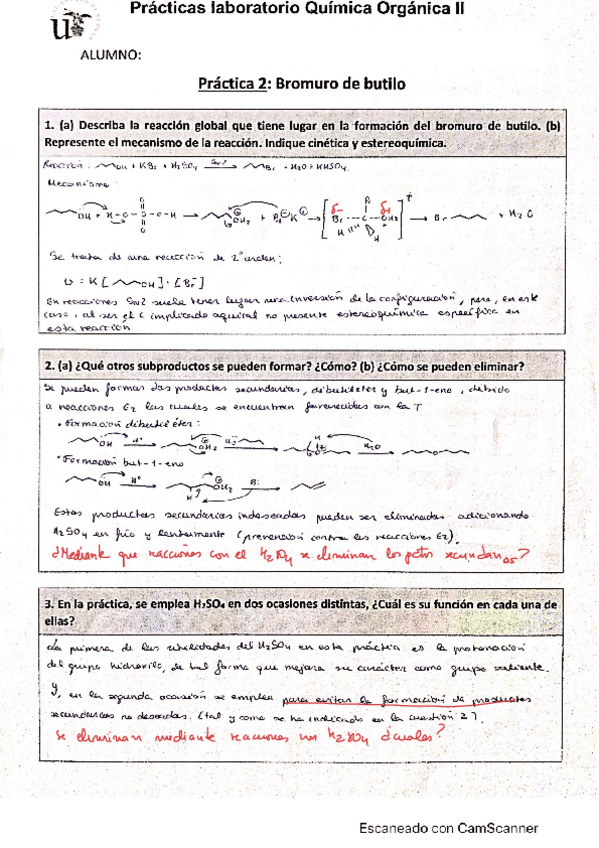 Prácticas laboratorio Química Orgánica II
ALUMNO:
Práctica 2: Bromuro de butilo
1. (a) Describa la reacción global que tiene lugar en la formación del bromuro de butilo. (b)
Represente el mecanismo de la reacción. Indique cinética y estereoquímica.
Reacción: OH + KBr + H2SO4 SN2 Br + H2O + KHSO4
Mecanismo:
Se trata de una reacción de 2º orden:
En reacciones SN2 suele tener lugar una inversión de la configuración, pero, en este
caso, al ser el C implicado aquiral no presente estereoquímica específica en
esta reacción
2. (a) ¿Qué otros subproductos se pueden formar? ¿Cómo? (b) ¿Cómo se pueden eliminar?
Se pueden formar dos productos secundarios, dibutiléter y but-1-eno, debido
a reacciones E2 las cuales se encuentran favorecidas con la T
• Formación dibutiléter:
• Formación but-1-eno
Estos productos secundarios indeseados pueden ser eliminados adicionando
H2SO4 en frío y lentamente (prevención contra las reacciones E2).
¿Mediante que reacciones con el H2SO4 se eliminan los secundarios?
3. En la práctica, se emplea H2SO4 en dos ocasiones distintas, ¿Cuál es su función en cada una de
ellas?
La primera de las utilidades del H2SO4 en esta práctica es la protonación
del grupo hidroxilo, de tal forma que mejora su carácter como grupo saliente.
Y, en la segunda ocasión se emplea para evitar la formación de productos
secundarios no deseados. (tal y como se ha indicado en la cuestión 2).
Se eliminan mediante reacciones con H2SO4 ¿cuales?
Escaneado con CamScanner